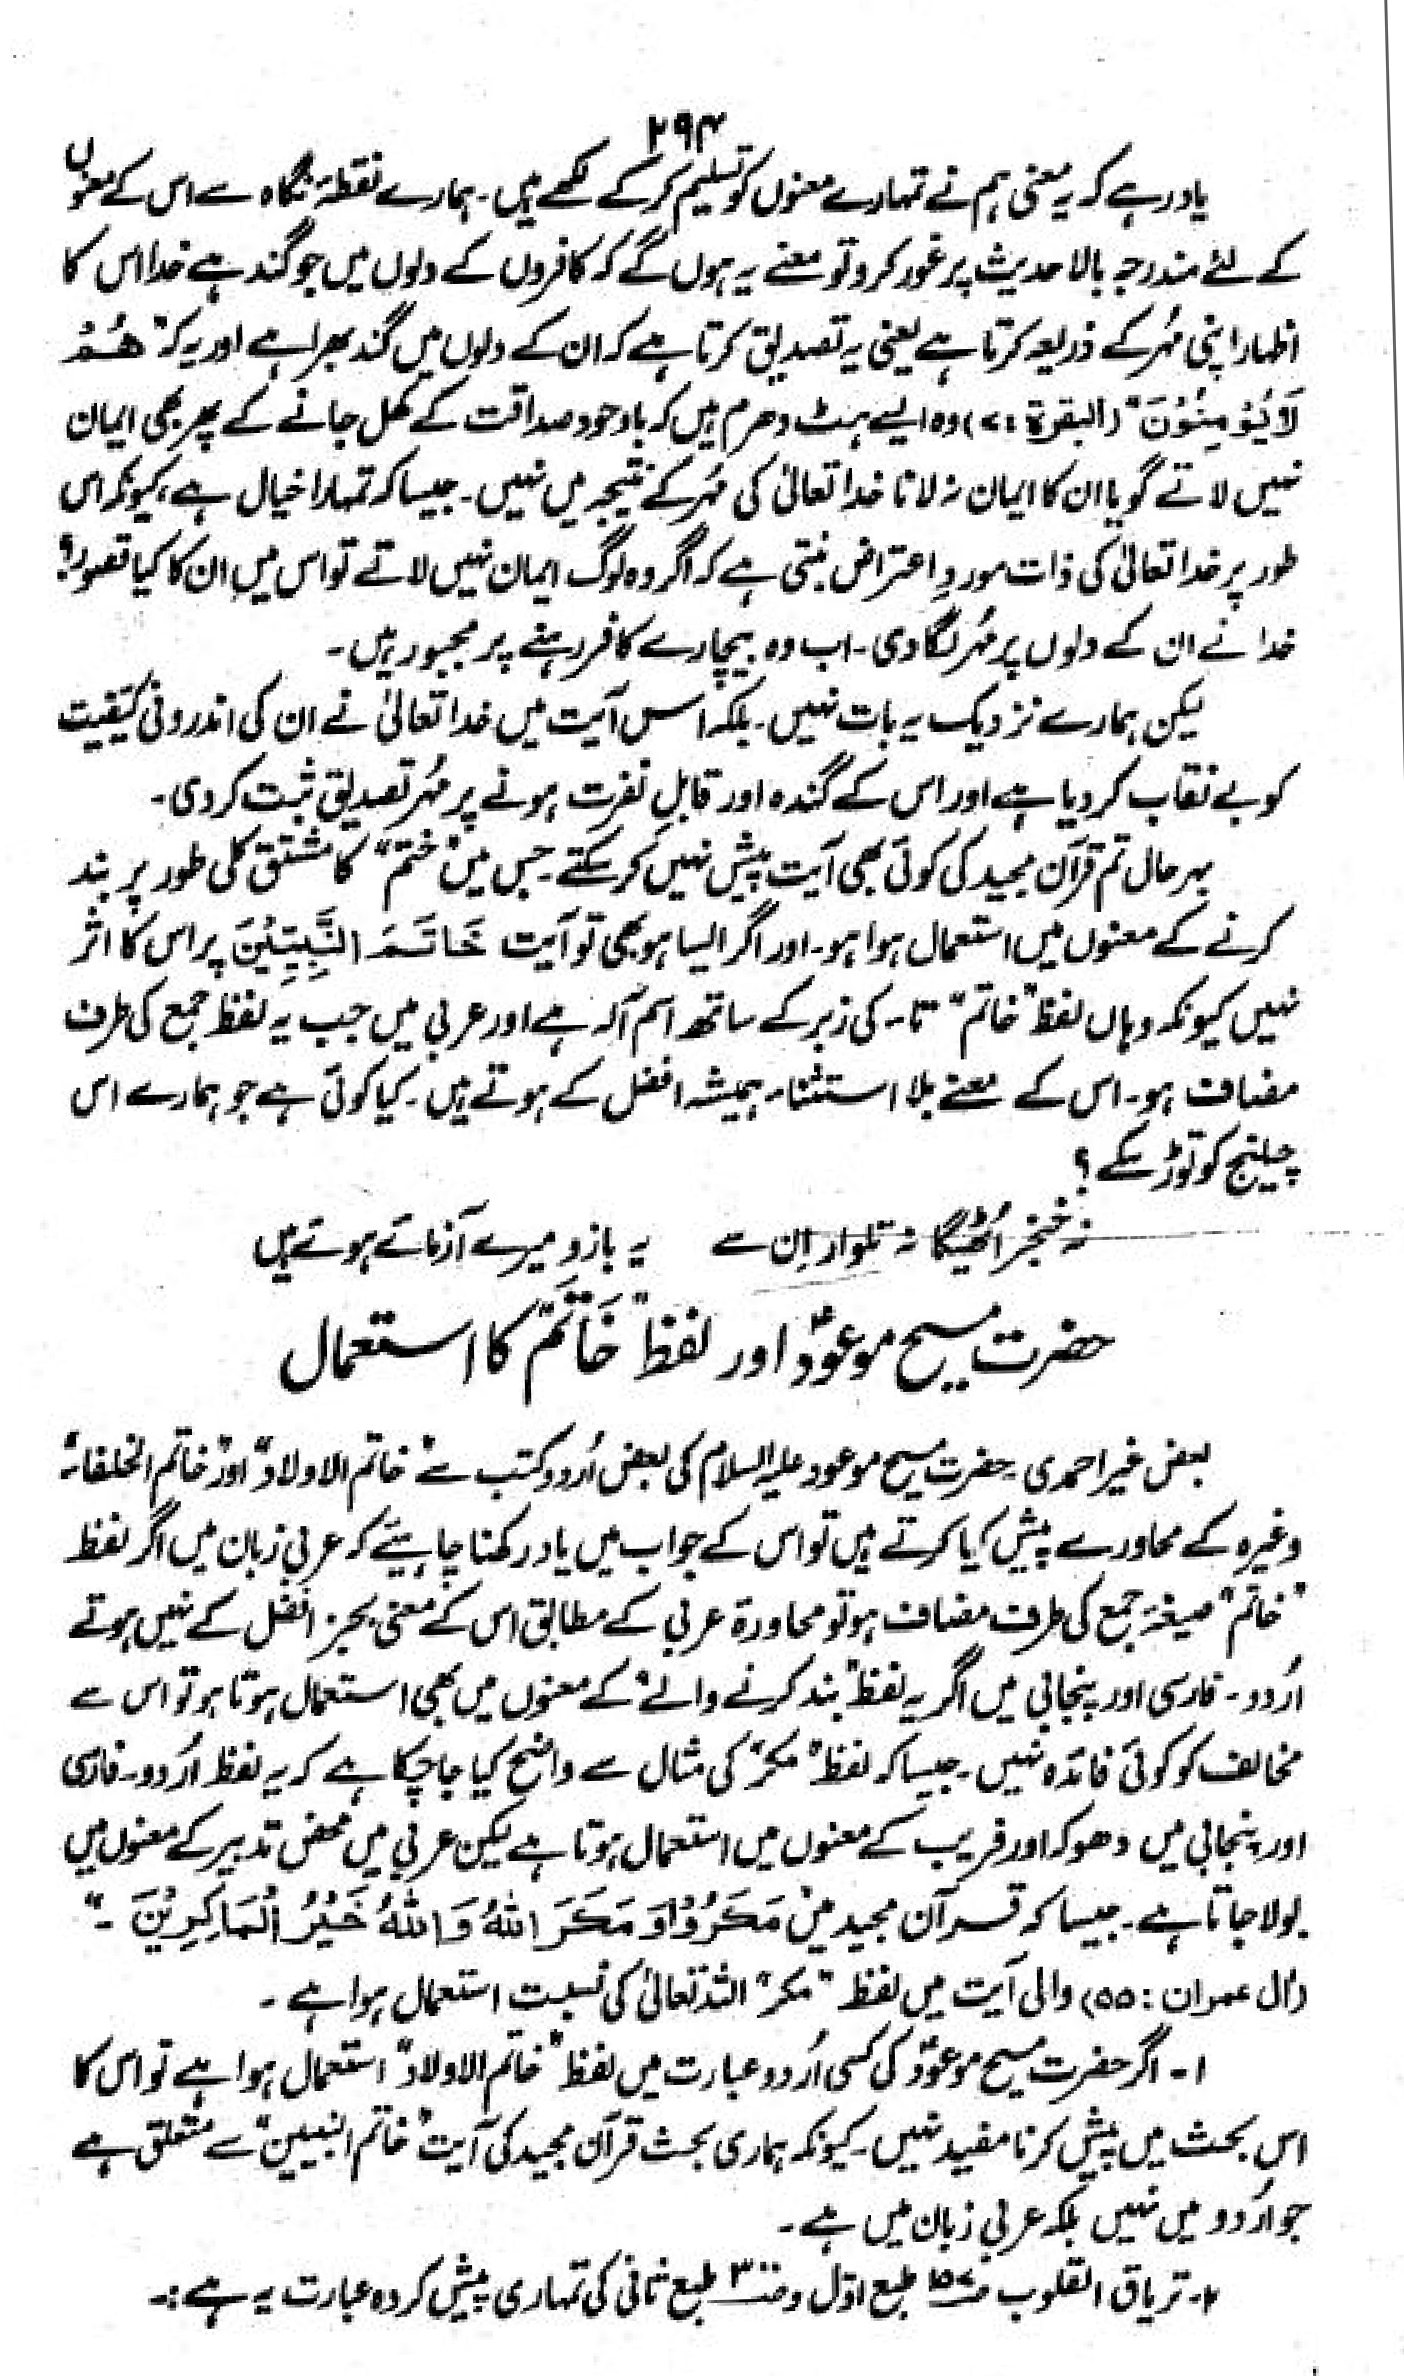 ۲۹۴
یاد رہے کہ یہ معنی ہم نے تمہارے معنوں کو تسلیم کر کے لکھے ہیں۔ ہمارے نقطۂ نگاہ سے اس کے معنوں
کے لئے مندرجہ بالا حدیث پر غور کرو تو معنے یہ ہوں گے کہ کافروں کے دلوں میں جو گند ہے خدا اس کا
اظہار اپنی مُہر کے ذریعہ کرتا ہے یعنی یہ تصدیق کرتا ہے کہ ان کے دلوں میں گند بھرا ہے اور یہ کہ "ھُمْ
لَا یُؤْمِنُوْنَ" (البقرة : ۷) وہ ایسے ہٹ دھرم ہیں کہ باوجود صداقت کے کھل جانے کے پھر بھی ایمان
نہیں لاتے گویا ان کا ایمان نہ لانا خدا تعالیٰ کی مُہر کے نتیجہ میں نہیں۔ جیسا کہ تمہارا خیال ہے، کیونکہ اس
طور پر خدا تعالیٰ کی ذات موردِ اعتراض بنتی ہے کہ اگر وہ لوگ ایمان نہیں لاتے تو اس میں ان کا کیا قصور؟
خدا نے ان کے دلوں پر مُہر لگا دی۔ اب وہ بیچارے کافر رہنے پر مجبور ہیں۔
لیکن ہمارے نزدیک یہ بات نہیں۔ بلکہ اس آیت میں خدا تعالیٰ نے ان کی اندرونی کیفیت
کو بے نقاب کر دیا ہے اور اس کے گندہ اور قابلِ نفرت ہونے پر مُہر تصدیق ثبت کر دی۔
بہر حال تم قرآن مجید کی کوئی بھی آیت پیش نہیں کر سکتے۔ جس میں "ختم" کا مشتق کلی طور پر بند
کرنے کے معنوں میں استعمال ہوا ہو۔ اور اگر ایسا ہو بھی تو آیت خَاتَمَ النَّبِیّٖنَ پر اس کا اثر
نہیں کیونکہ وہاں لفظ "خاتم" تاء کی زبر کے ساتھ اسم آلہ ہے اور عربی میں جب یہ لفظ جمع کی طرف
مضاف ہو۔ اس کے معنے بلا استثناء ہمیشہ افضل کے ہوتے ہیں۔ کیا کوئی ہے جو ہمارے اس
چیلنج کو توڑ سکے؟
نہ خنجر اُٹھیگا نہ تلوار اِن سے یہ بازو میرے آزمائے ہوئے ہیں
حضرت مسیح موعودؑ اور لفظ "خَاتَم" کا استعمال
بعض غیر احمدی حضرت مسیح موعود علیہ السلام کی بعض اُردو کتب سے "خاتم الاولاد" اور "خاتم الخلفاء"
وغیرہ کے محاورے پیش کیا کرتے ہیں تو اس کے جواب میں یاد رکھنا چاہیئے کہ عربی زبان میں اگر لفظ
"خاتم" صیغۂ جمع کی طرف مضاف ہو تو محاورة عربی کے مطابق اس کے معنی بجز افضل کے نہیں ہوتے
اُردو۔ فارسی اور پنجابی میں اگر یہ لفظ "بند کرنے والے" کے معنوں میں بھی استعمال ہوتا ہو تو اس سے
مخالف کو کوئی فائدہ نہیں۔ جیسا کہ لفظ "مکر" کی مثال سے واضح کیا جا چکا ہے کہ یہ لفظ اُردو۔ فارسی
اور پنجابی میں دھوکہ اور فریب کے معنوں میں استعمال ہوتا ہے لیکن عربی میں محض تدبیر کے معنوں میں
بولا جاتا ہے۔ جیسا کہ قرآن مجید میں "مَکَرُوْا وَ مَکَرَ اللّٰہُ وَ اللّٰہُ خَیْرُ الْمَاکِرِیْنَ ۔"
(اٰل عمران : ۵۵) والی آیت میں لفظ "مکر" اللہ تعالیٰ کی نسبت استعمال ہوا ہے ۔
۱۔ اگر حضرت مسیح موعودؑ کی کسی اُردو عبارت میں لفظ "خاتم الاولاد" استعمال ہوا ہے تو اس کا
اس بحث میں پیش کرنا مفید نہیں۔ کیونکہ ہماری بحث قرآن مجید کی آیت "خاتم النبیین" سے متعلق ہے
جو اُردو میں نہیں بلکہ عربی زبان میں ہے۔
۲۔ تریاق القلوب ص۱۵۷ طبع اوّل و ص۳۰۰ طبع ثانی کی تمہاری پیش کردہ عبارت یہ ہے:۔